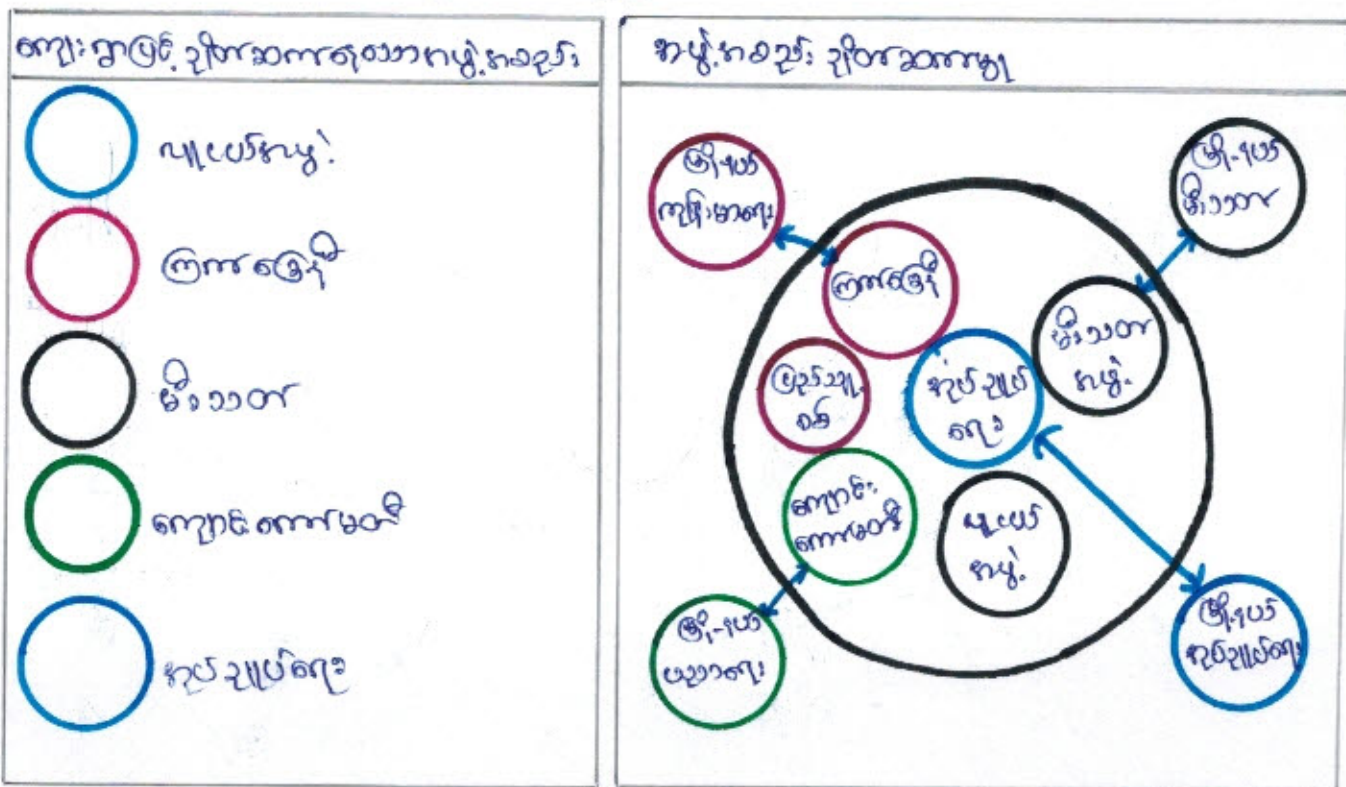 ကျေးရွာမြင့် ညှိတ်ဆက်ရသောအဖွဲ့အစည်း
လူငယ်အဖွဲ့
ကြက်ခြေနီ
မီးသတ်
ကျောင်းကော်မတီ
အုပ်ချုပ်ရေး
အဖွဲ့အစည်း ချိတ်ဆက်မှု
မြို့နယ်
ကျန်းမာရေး
မြို့နယ်
မီးသတ်
ကြက်ခြေနီ
မီးသတ်
အဖွဲ့
ပြည်သူ့
စစ်
အုပ်ချုပ်
ရေး
ကျောင်း
ကော်မတီ
လူငယ်
အဖွဲ့
မြို့နယ်
ပညာရေး
မြို့နယ်
အုပ်ချုပ်ရေး